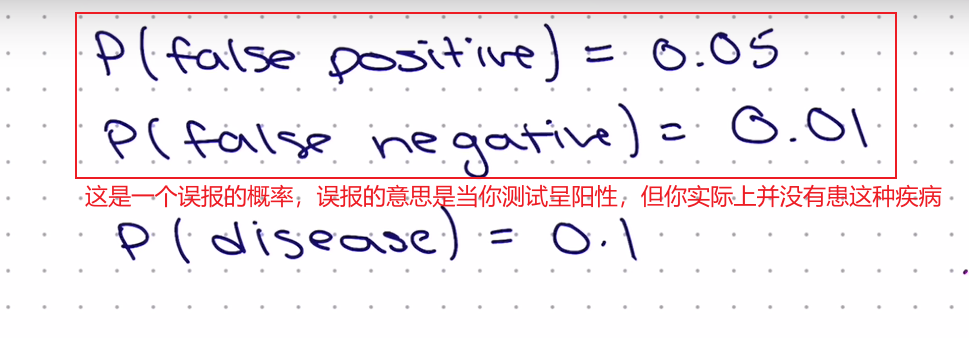 P(false positive) = 0.05
P(false negative) = 0.01
这是一个误报的概率，误报的意思是当你测试呈阳性，但你实际上并没有患这种疾病
P(disease) = 0.1